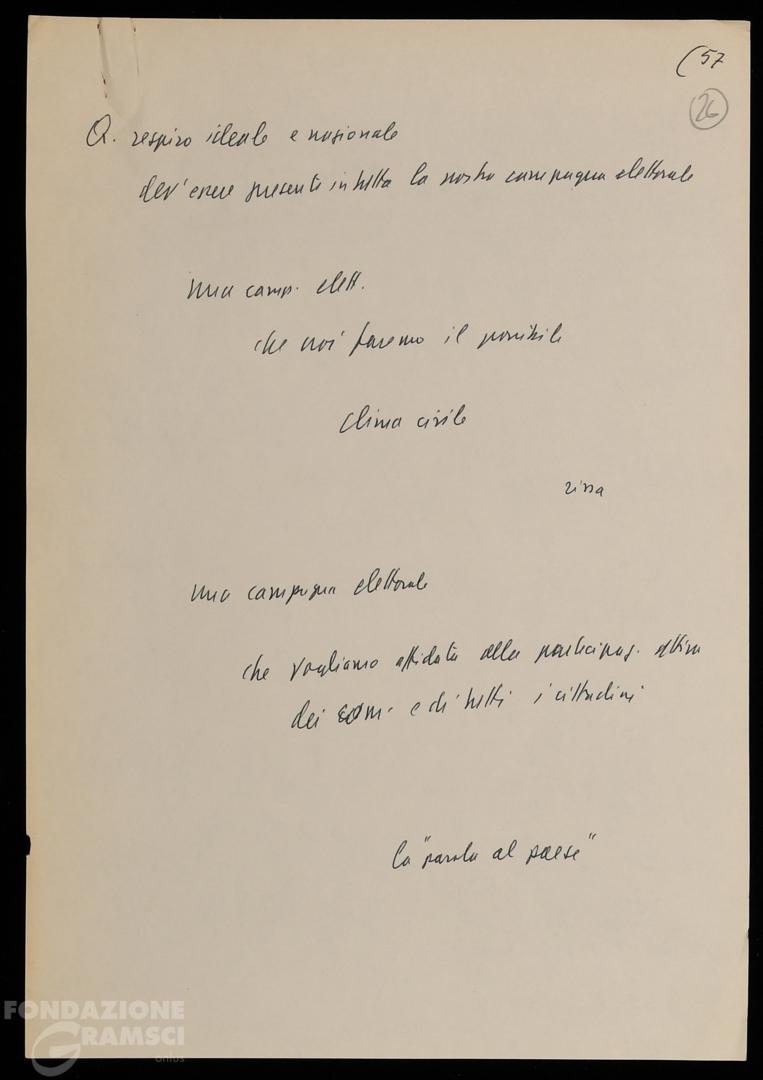 (57
26
Q. respiro ideale e nazionale
dev'essere presente in tutta la nostra campagna elettorale
una camp. elett.
che noi faremo il possibile
clima civile
rissa
una campagna elettorale
che vogliamo affidata alla partecipaz. attiva
dei com. e di tutti i cittadini
la "parola al paese"
FONDAZIONE
GRAMSCI
onlus